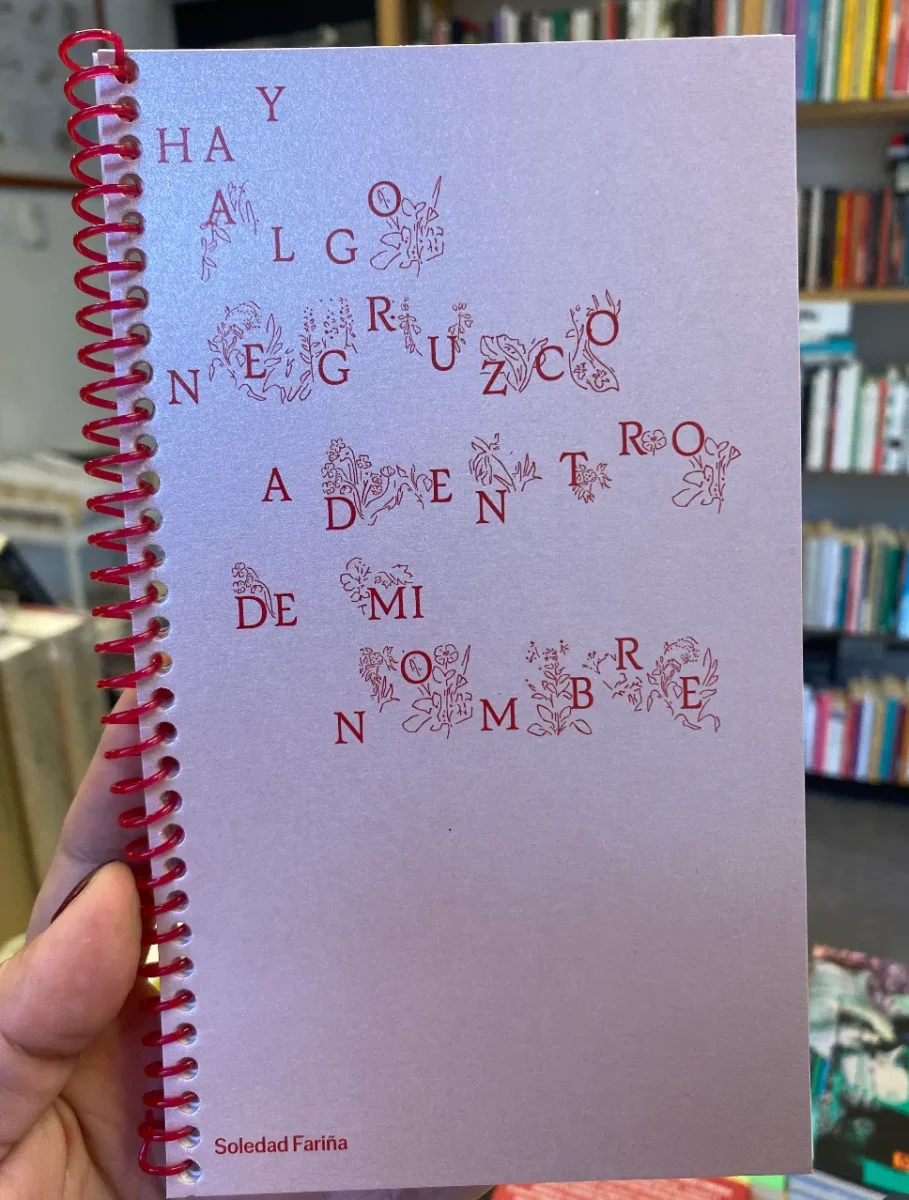 HAY
ALGO
NEGRUZCO
ADENTRO
DE MI
NOMBRE
Soledad Fariña